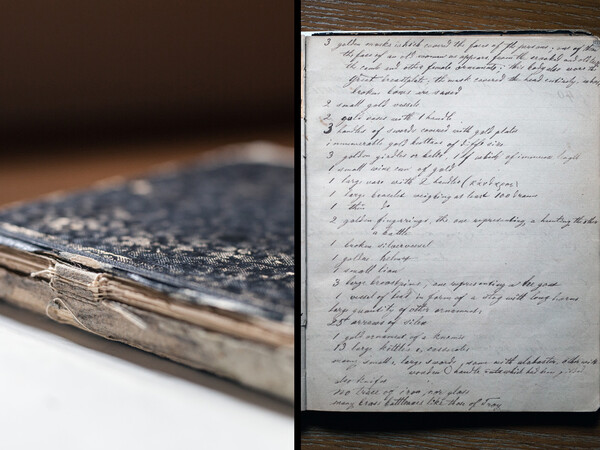 3 golden masks which covered the faces of the persons; one of them
the face of an old woman as appears from the
the comb and other female ornaments; this body also wore a
Great breastplate; the mask covered the head entirely, when
broken bones are saved
2 small gold vessels
2 gold vases with 1 handle
3 handles of swords covered with gold plates
innumerable gold buttons of difft size
3 golden girdles or belts, 1 of which of immense length
1 small wine can of gold
1 large vase with 2 handles
1 large bracelet weighing at least 100 drams
1 thin do
2 golden fingerrings, the one representing a hunting the other
a battle
1 broken silvervessel
1 golden
1 small lion
3 large one representing a
1 vessel of lead in form of a stag with long horns
large quantity of other ornaments;
25 arrows of silex
1 gold ornament of a
13 large kettles
many small & large swords, some with alabaster, other with
wooden handle
also knifes
no trace of iron, nor glass
many brass battleaxes like those of Troy